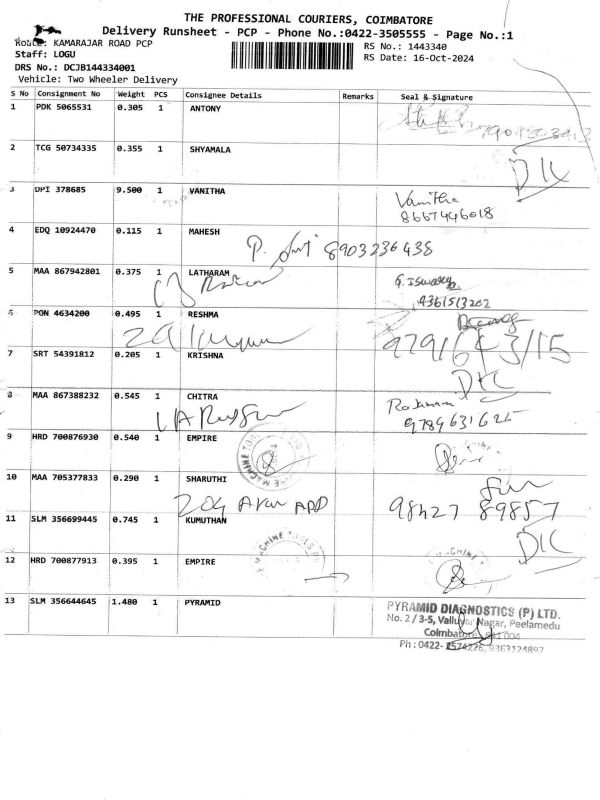 THE PROFESSIONAL COURIERS, COIMBATORE
Delivery Runsheet - PCP - Phone No.:0422-3505555 - Page No.:1
Route: KAMARAJAR ROAD PCP
RS No.: 1443340
Staff: LOGU
RS Date: 16-Oct-2024
DRS No.: DCJB144334001
Vehicle: Two Wheeler Delivery
S No Consignment No Weight PCS Consignee Details Remarks Seal & Signature
1 PDK 5065531 0.305 1 ANTONY
2 TCG 50734335 0.355 1 SHYAMALA
DK
3 DPI 378685 9.500 1 VANITHA Vanitha
8667446018
4 EDQ 10924470 0.115 1 MAHESH
P. 8903236438
5 MAA 867942801 0.375 1 LATHARAM
9361513202
6 PON 4634200 0.495 1 RESHMA
7 SRT 54391812 0.205 1 KRISHNA
DK
8 MAA 867388232 0.545 1 CHITRA
9789631625
9 HRD 700876930 0.540 1 EMPIRE
10 MAA 705377833 0.290 1 SHARUTHI
204 98427 89857
11 SLM 356699445 0.745 1 KUMUTHAN
DK
12 HRD 700877913 0.395 1 EMPIRE
13 SLM 356644645 1.480 1 PYRAMID
PYRAMID DIAGNOSTICS (P) LTD.
No. 2 / 3-5, Valluvar Nagar, Peelamedu
Coimbatore
Ph : 0422- 2574226, 9363124897